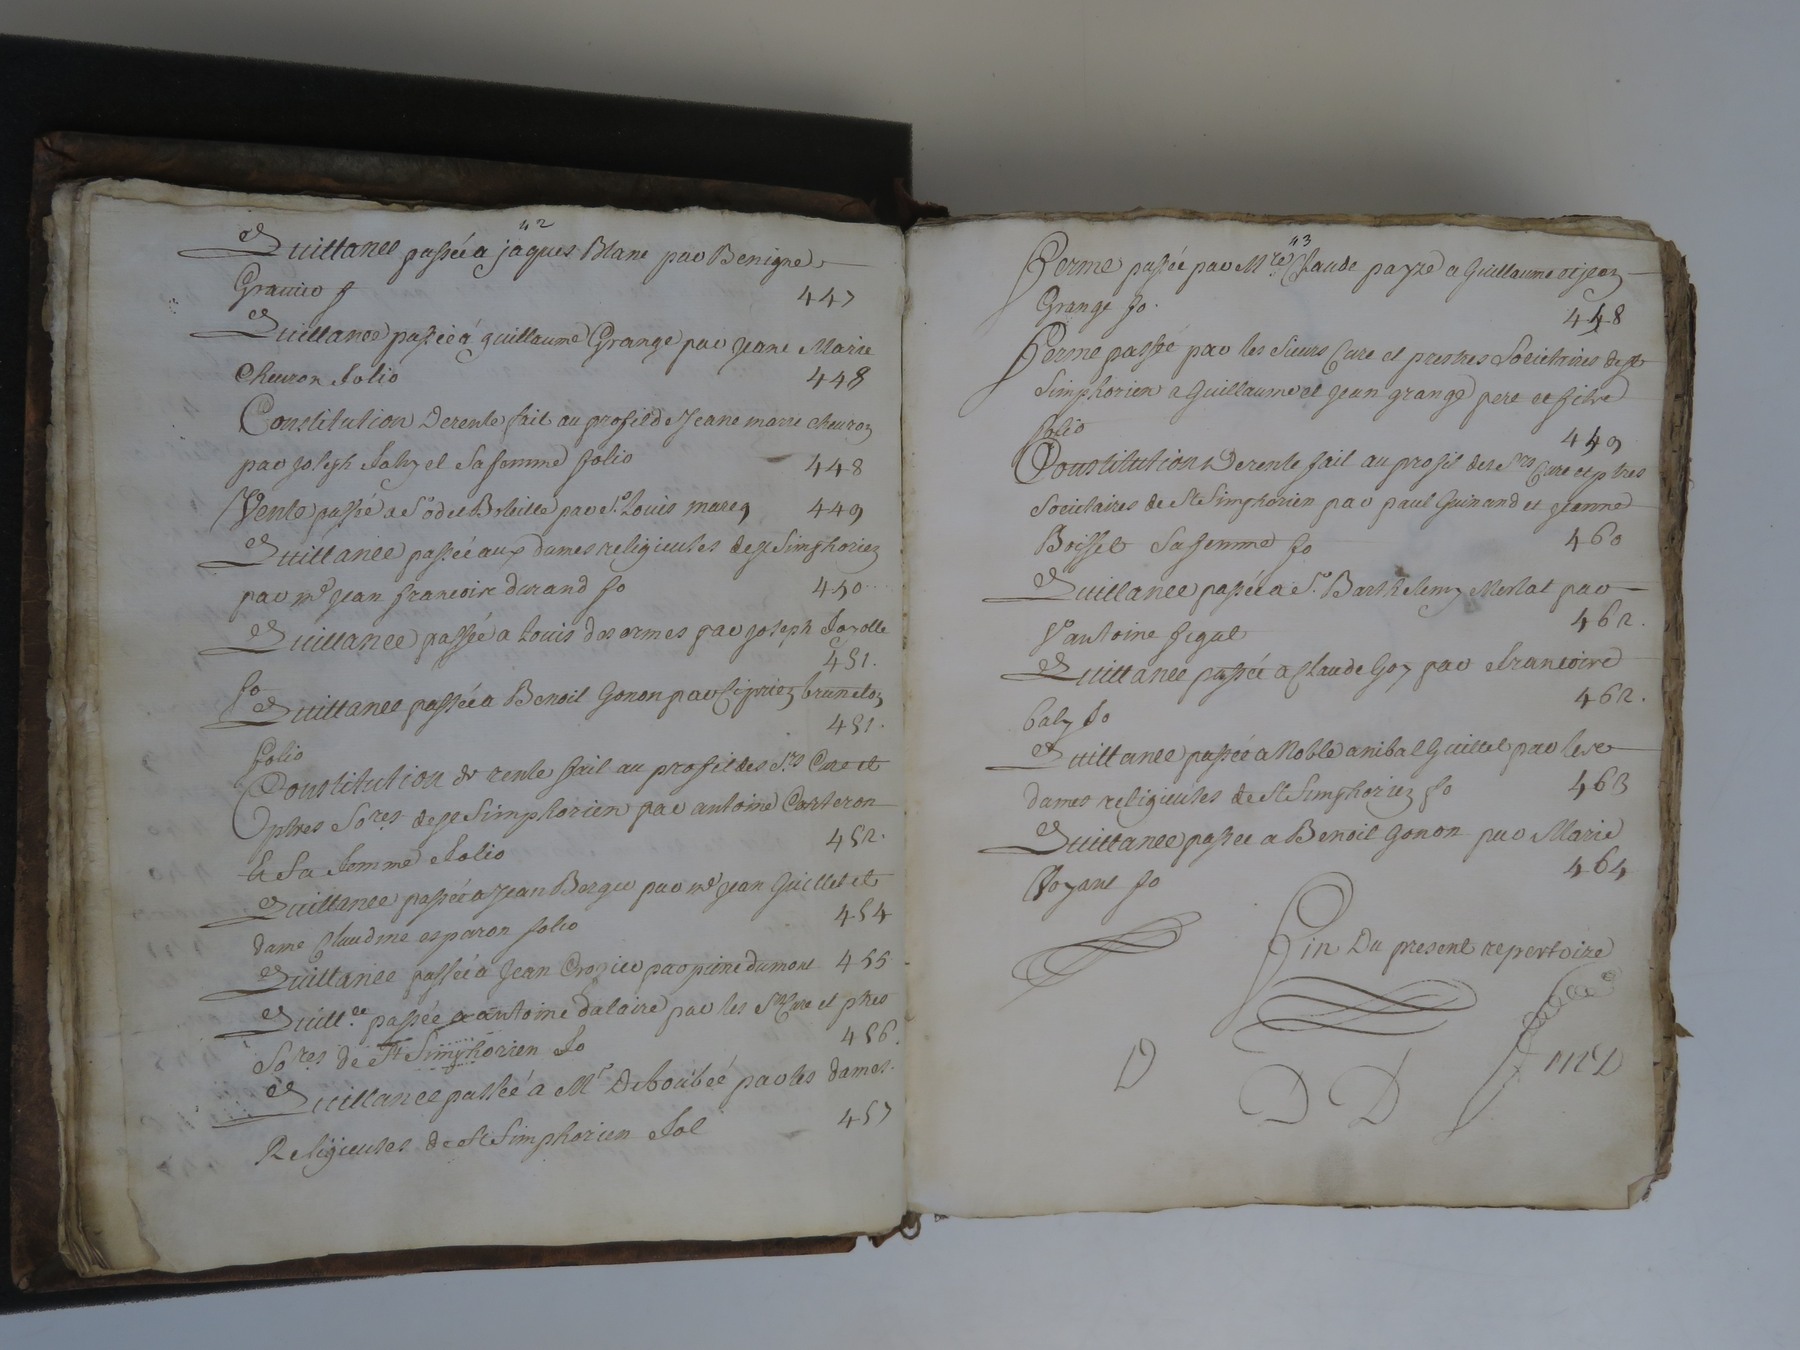 42
Quittance passée a jaques Blanc par Benigne
Gravier f 447
Quittance passée a guillaume Grange par Jeane Marie
Cheuron folio 448
Constitution De rente fait au profit de Jeane marie cheuron
par Joseph et Sa femme folio 448
Vente passé a Sr par Sr Louis 449
Quittance passée aux dames religieuses de St Simphorien
par me Jean francois durand fo 450
Quittance passée a Louis des ormes par joseph
fo 451.
Quittance passée a Benoit Gonon par Ciprien bruneton
folio 451.
Constitution de rente fait au profit des Srs Cure et
ptres So.res de St Simphorien par antoine Carteron
et Sa femme folio 452.
Quittance passée a Jean par me Jean Guillet et
dame Claudine esparon folio 454
Quittance passée a Jean Crozier par piere dumont 455
Quitt.ce passée a antoine dalaire par les Srs Cure et ptres
So.res de St Simphorien fo 456.
Quittance passée a Mr par les dames
Religieuses de St Simphorien fol 457
43
ferme passée par Mre Claude payre a Guillaume et jean
Grange fo. 448
ferme passée par les sieurs Cure et prestres Societaires de St
Simphorien a Guillaume et Jean grange pere et fils
folio 449
Constitution De rente fait au profit des Srs Cure et ptres
Societaires de St Simphorien par paul Guinand et jeanne
Boisset Sa femme fo 460
Quittance passée a Sr Barthelemy Merlat par
Sr antoine 462.
Quittance passée a Claude Goy par francoise
baly fo 462.
Quittance passée a Noble anibal Guillet par les
dames religieuses de St Simphorien fo 463
Quittance passée a Benoit Gonon par Marie
Voyant fo 464
fin Du present repertoire
D D D